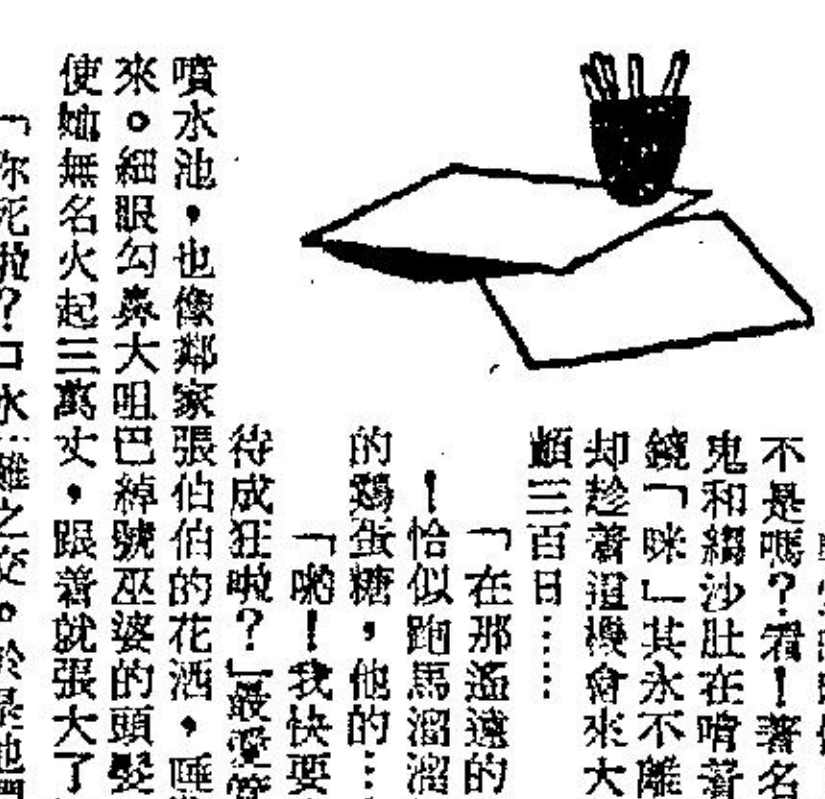 不是嗎？看！著名
鬼和縐沙肚在啃着
鏡「咪」其永不離
却趁着這機會來大
顛三百日……
「在那遙遠的
！恰似跑馬溜溜
的鷄蛋糖，他的…
「喲！我快要
待成狂啦？」最愛
噴水池，也像鄰家張伯伯的花洒，唾
來。細眼勾鼻大咀巴綽號巫婆的頭髮
使她無名火起三萬丈，跟着就張大了
「你死啦？口水
雜之交。於是他們